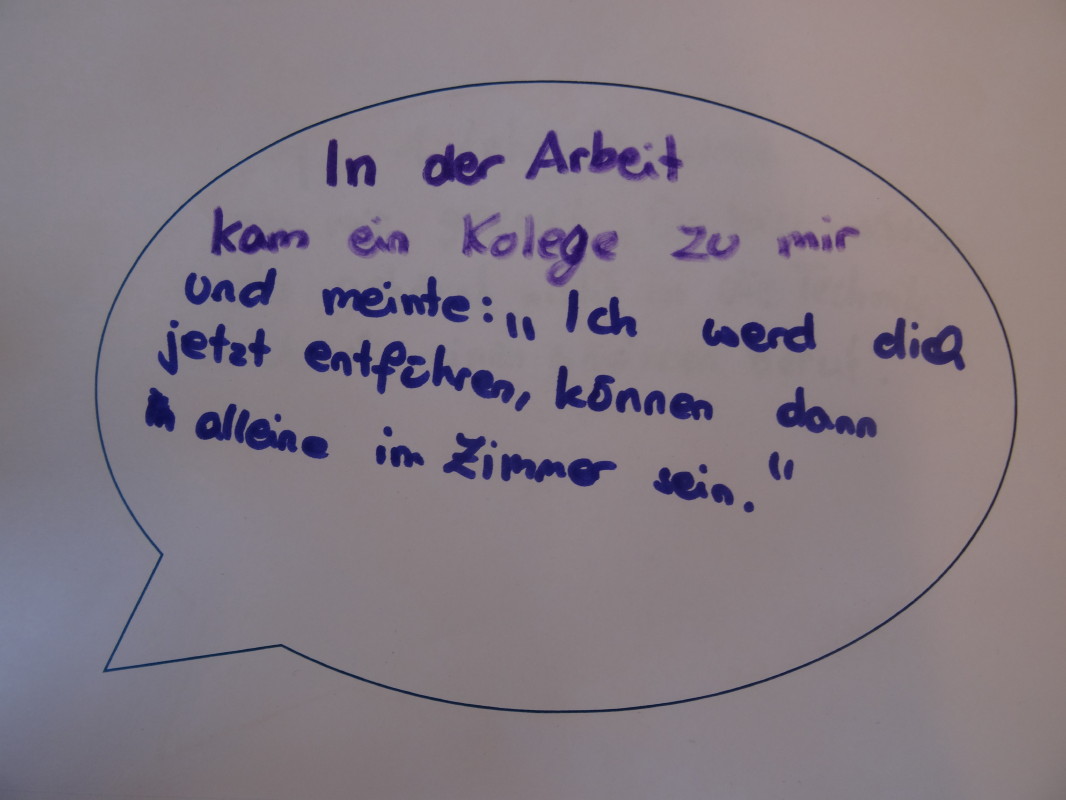 In der Arbeit
kam ein Kolege zu mir
und meinte: „Ich werd dich
jetzt entführen, können dann
alleine im Zimmer sein."